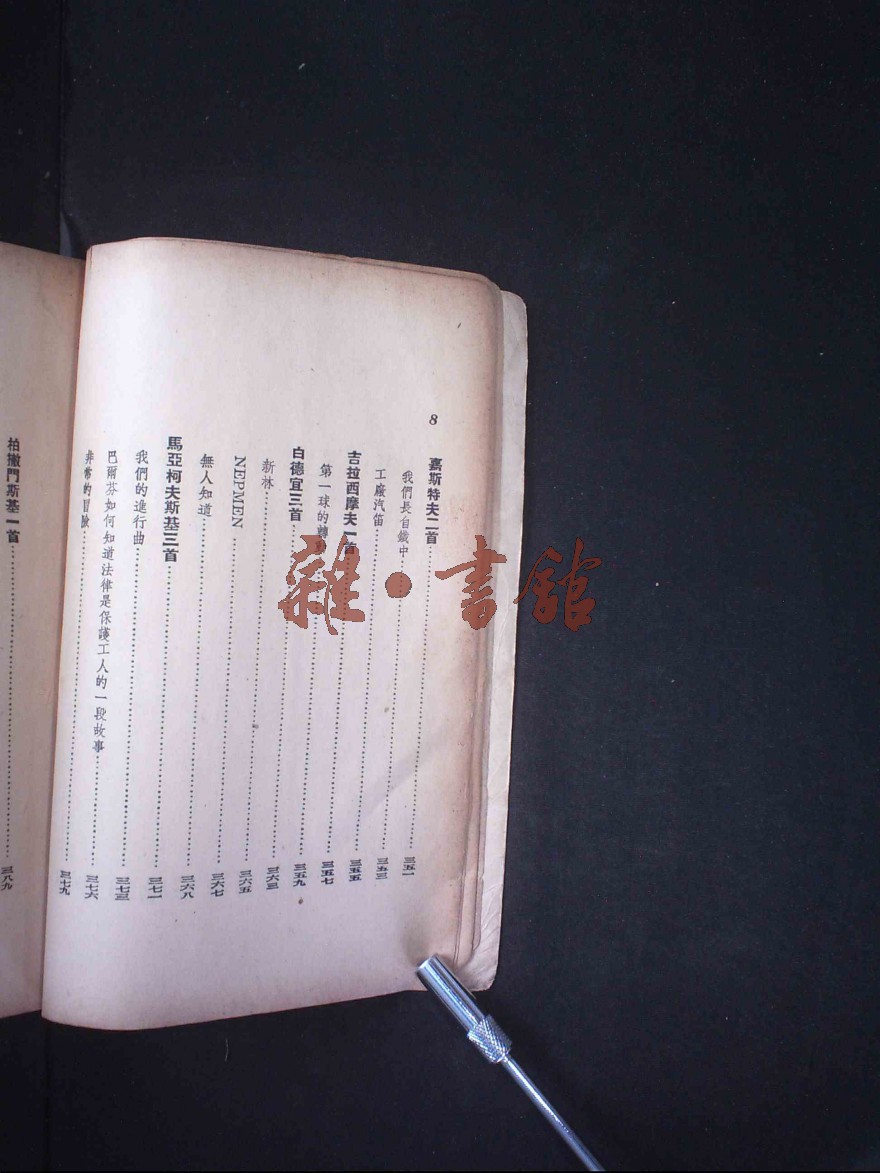 8
嘉斯特夫二首……三五一
我們長自鐵中……三五三
工廠汽笛……三五五
吉拉西摩夫一首……三五七
第一球的轉動……三五九
白德宜三首……三六三
新林……三六五
NEPMEN……三六七
無人知道……三六八
馬亞柯夫斯基三首……三七一
我們的進行曲……三七三
巴爾芬如何知道法律是保護工人的一段故事……三七六
非常的冒險……三七九
柏撤門斯基一首……三八九
雜·書館